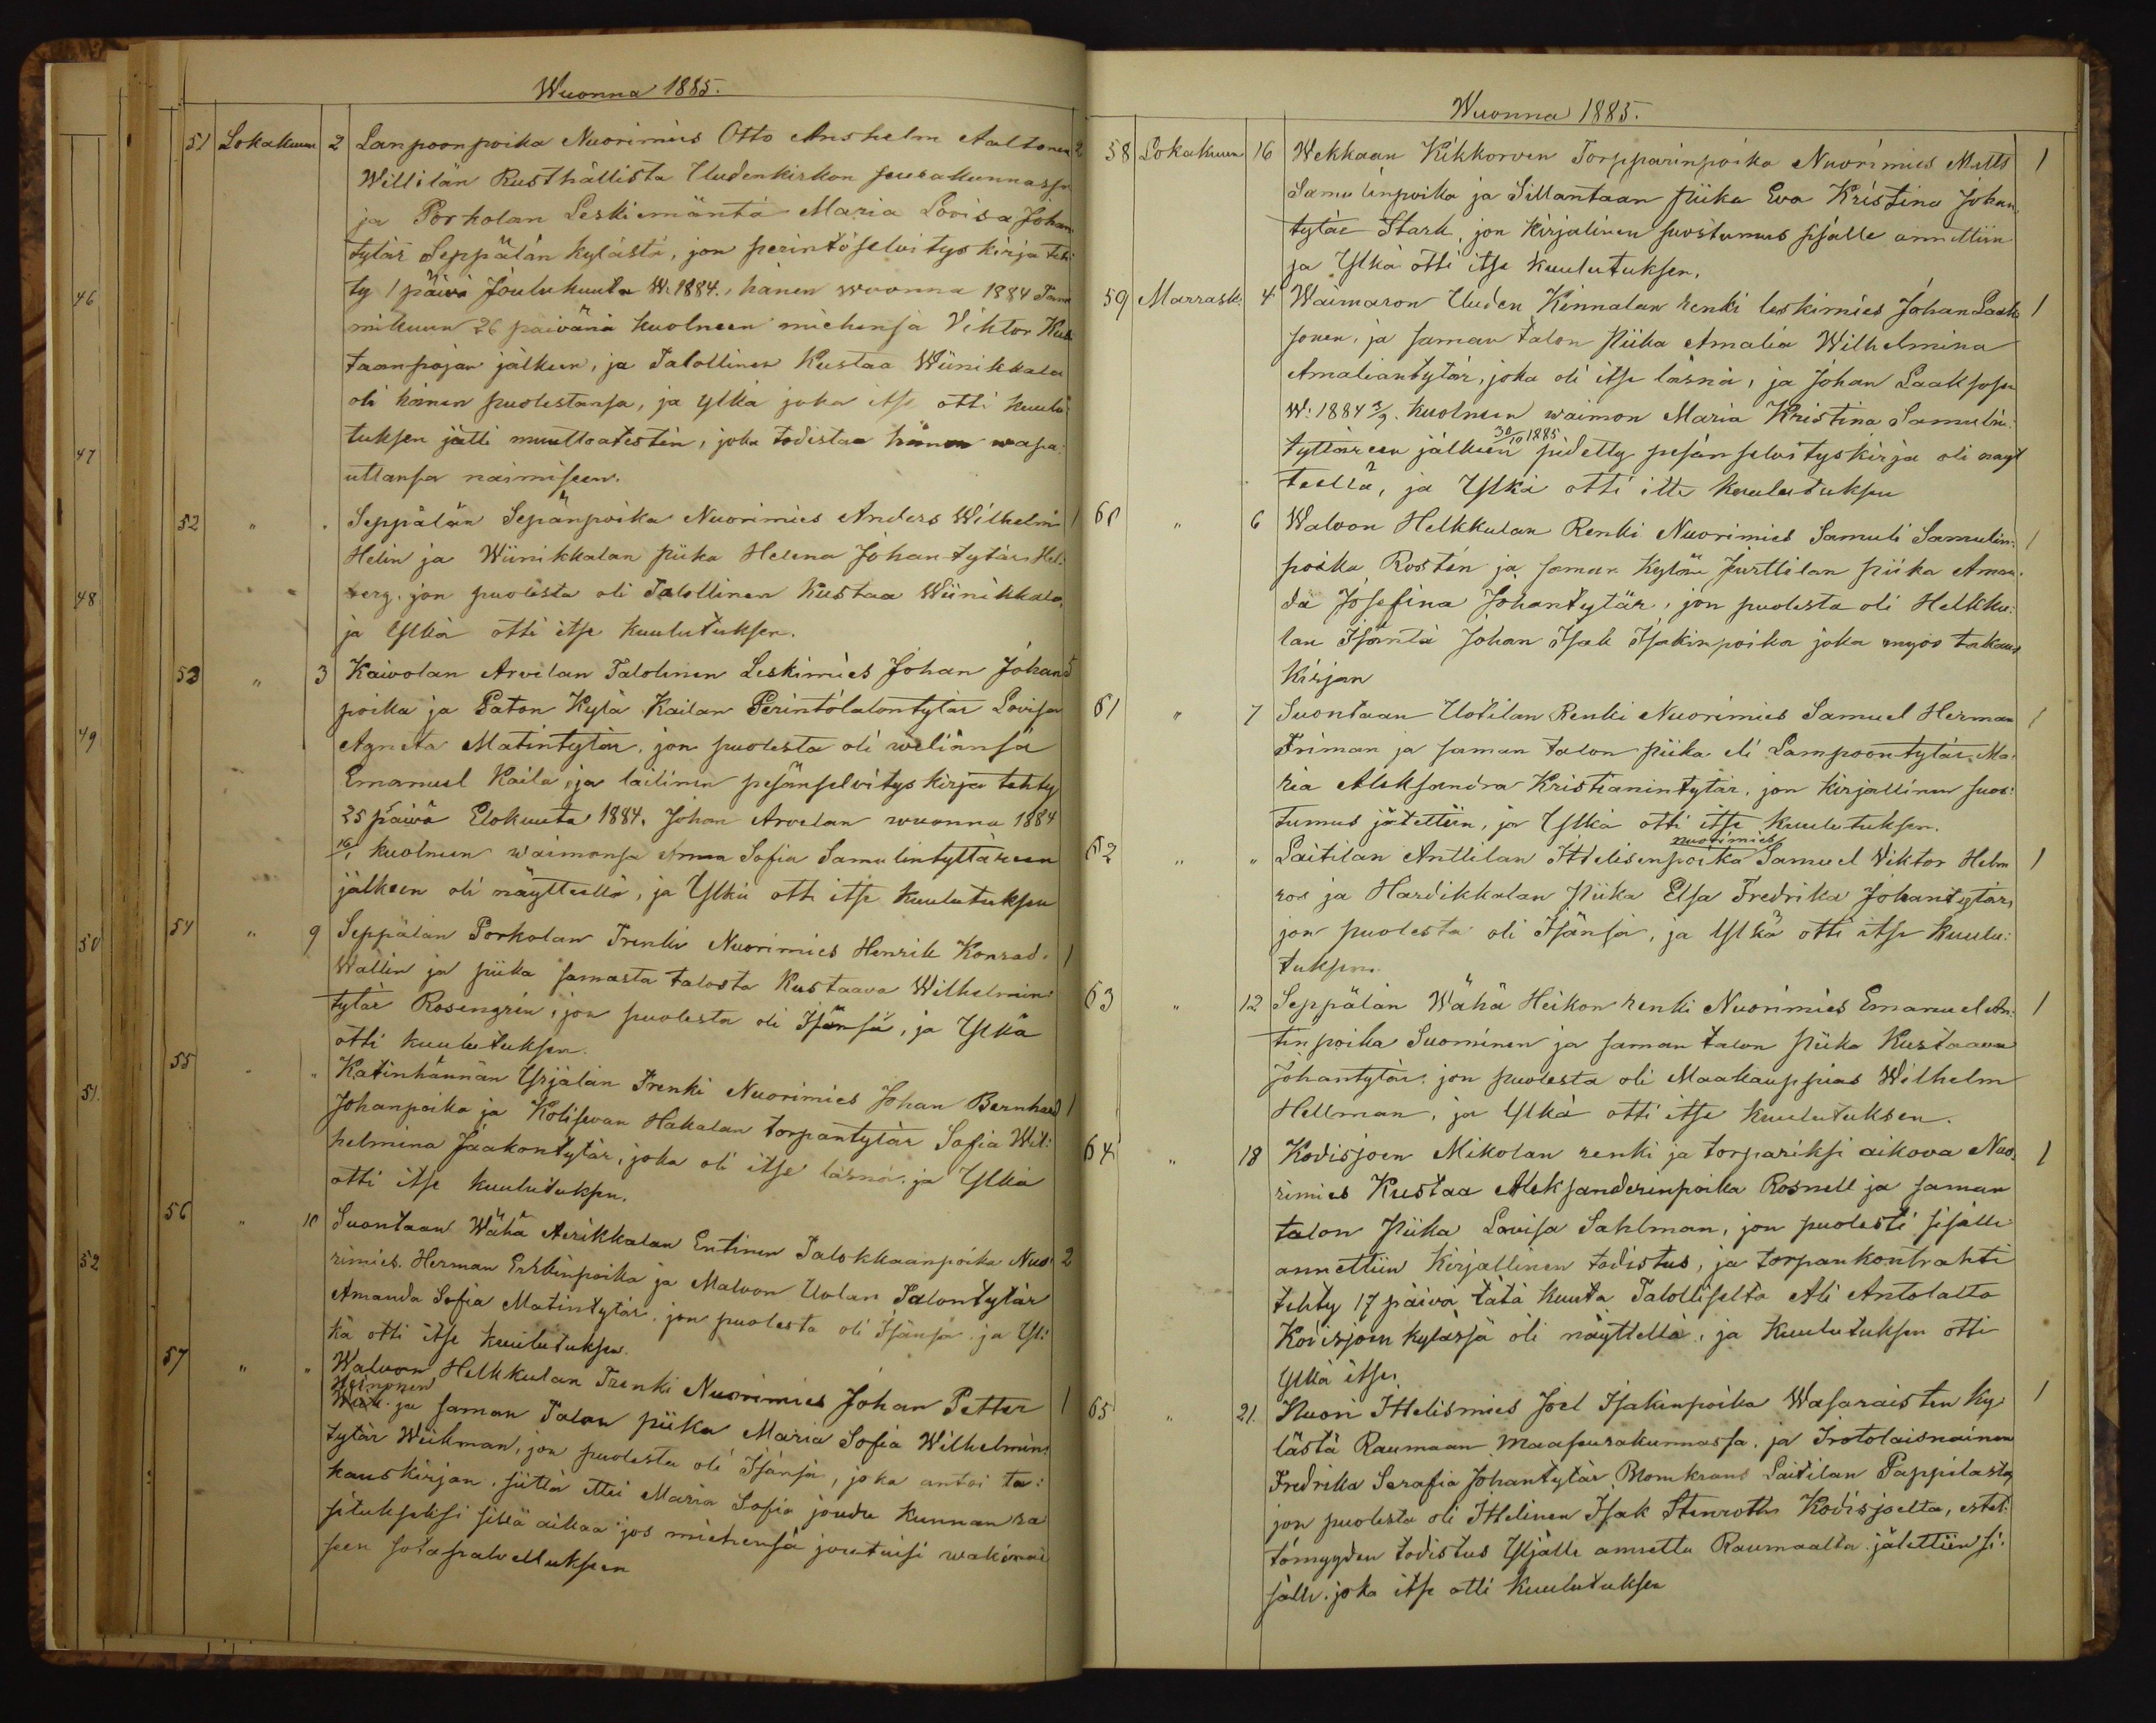 Wuonna 1885.
51 Lokakuun 2 Lampoonpoika Nuorimies Otto Anshelm Aaltonen 2
Willilän Rusthållista Uudenkirkon seurakunnassa
ja Porkolan Leskiemäntä Maria Lovisa Johan
tytär Seppälän kylästä, jon perintöselvityskirja teh:
ty 1 päivä Joulukuuta W. 1884., hänen wuonna 1884 Tam
mikuun 26 päivänä kuolneen miehensä Viktor Kus
taanpojan jälkeen, ja Talollinen Kustaa Wiinikkala
oli hänen puolestansa, ja Ylkä joka itse otti kuulu
tuksen jätti muuttoatestin, joka todistaa hänen wapa:
uttansa naimiseen.
52 " " Seppälän Sepänpoika Nuorimies Anders Wilhelm 1
Helin ja Wiinikkalan piika Helena Johantytär Hel:
berg. jon puolesta oli Talollinen Kustaa Wiinikkala,
ja Ylkä otti itse kuulutuksen.
53 " 3 Kaivolan Arvelan Talolinen Leskimies Johan Johan
poika ja Paton Kylä Kailan Perintötalontytär Lovisa
Agneta Matintytär, jon puolesta oli weliänsä
Emanuel Kaila, ja lailinen pesänselvityskirja tehty
25 päivä Elokuuta 1884. Johan Arvelan wuonna 1884
16/1 kuolneen waimonsa Anna Sofia Samulintyttäreen
jälkeen oli näytteellä, ja Ylkä otti itse kuulutuksen
54 " 9 Seppälän Porkolan Trenki Nuorimies Henrik Konrad. 1
Wallin ja piika samasta talosta Kustaava Wilhelmin:
tytär Rosengrin, jon puolesta oli Isänsä, ja Ylkä
otti kuulutuksen.
55 " " Katinhännän Yrjälän Trenki Nuorimies Johan Bernhard 1
Johanpoika ja Kolisevan Hakalan torpantytär Sofia Wil:
helmina Jaakontytär, joka oli itse läsnä. ja Ylkä
otti itse kuulutuksen.
56 " 10 Suontaan Wähä Aerikkalan Entinen Talokkaanpoika Nuo: 2
rimies. Herman Erkkinpoika ja Malvon Uolan Talontytär
Amanda Sofia Matintytär. jon puolesta oli Isänsä. ja Yl:
kä otti itse kuulutuksen.
57 " " Walvon Helkkulan Trenki Nuorimies Johan Petter 1
Heinonen
ja saman Talon piika Maria Sofia Wilhelmin:
tytär Wiikman, jon puolesta oli Isänsä, joka antoi ta:
kauskirjan. siitä ettei Maria Sofia joudu kunnan ra
situkseksi sillä aikaa jos miehensä joutuisi wakinai
sen sotapalvelluksen
46
47
48
49
50
51.
52
Wuonna 1885.
58 Lokakuun 16 Wekkaan Kikkorven Torpparinpoika Nuorimies Matts 1
Samulinpoika ja Sillantaan piika Eva Kristina Johan.
tytär Stark, jon Kirjalinen suostumus sisälle annettiin
ja Ylkä otti itse kuulutuksen.
59 Marrask: 4 Waimaron Uuden Kinnalan renki leskimies Johan Laak 1
sonen, ja saman talon piika Amalia Wilhelmina
Amaliantytär, joka oli itse läsnä, ja Johan Laaksosen
W: 1884 3/9. kuolneen waimon Maria Kristina Samulin:
tyttäreen jälkeen 30/10 1885 pidetty pesänselvityskirja oli näyt
teellä, ja Ylkä otti itte kuulutuksen
60 " 6 Walvon Helkkulan Renki Nuorimies Samuli Samulin: 1
poika Rostén ja saman Kylän Jurttilan piika Aman:
da Josefina Johantytär, jon puolesta oli Helkku:
lan Isäntä Johan Isak Isakinpoika joka myös takaus
kirjan
61 " 7 Suontaan Uotilan Renki Nuorimies Samuel Herman 1
Friman ja saman talon piika eli Lampoontytär Ma
ria Aleksandra Kristianintytär, jon kirjallinen suos:
tumus jätettiin, ja Ylkä otti itse kuulutuksen.
62 " " Laitilan Anttilan Ittelisenpoika nuorimies Samuel Viktor Helm 1
ros ja Hardikkalan piika Elsa Fredrika Johantytär,
jon puolesta oli Isänsä, ja Ylkä otti itse kuulu:
tuksen.
63 " 12 Seppälän Wähä Heikon renki Nuorimies Emanuel An: 1
tinpoika Suominen ja saman talon piika Kustaava
Johantytär. jon puolesta oli Maakauppias Wilhelm
Hellman, ja Ylkä otti itse kuulutuksen.
64 " 18 Kodisjoen Mikolan renki ja torpariksi aikova Nuo, 1
rimies Kustaa Aleksanderinpoika Rosnell ja saman
talon piika Lovisa Sahlman, jon puolesti sisälle
annettiin Kirjallinen todistus, ja torpankontrahti
tehty 17 päivä tätä kuuta Talolliselta Ali Antolalta
Kodisjoen kylässä oli näyttellä, ja kuulutuksen otti
Ylkä itse.
65 " 21. Nuori Ittelismies Joel Isakinpoika Wasaraisten Ky: 1
lästä Raumaan Maaseurakunnassa, ja Irtolaisnainen
Fredrika Serafia Johantytär Blomkrans Laitilan Pappilasta,
jon puolesta oli Ittelinen Isak Stenroth Kodisjoelta, estet:
tömyyden todistus Yljälle annettu Raumaalta jätettiin si:
sälle. joka itse otti kuulutuksen